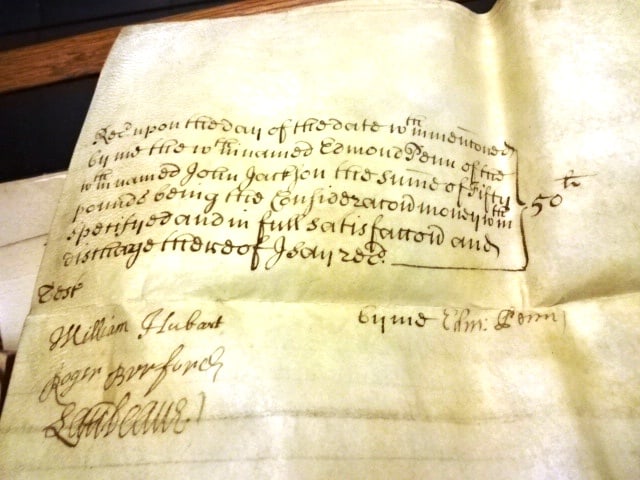 Recd upon the day of the date wthin mentoned
by me the wthin named Edmond Penn of the
wthin named John Jackson the sume of Fifty
pounds being the Consideratoñ money wthin
spetifyed and in full satisfactoñ and
discharge thereof I say recd.
50th
Test
William Hubart
by me Edm: Penn
Roger